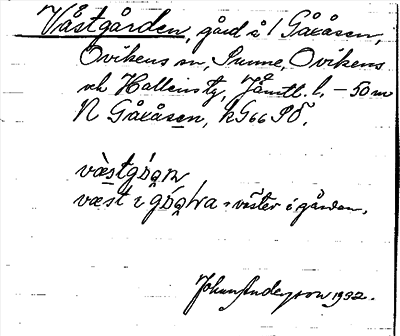 Våstgården, gård å 1 Gåxåsen,
Ovikens sn, Sunne, Ovikens
och Hallens tg, Jämtl. l, - 50 m
N Gåxåsen, kG66 SÖ.
væstgɷ́ɑɳ
væst i gɷ́ɑɳa = väster i gården.
Johan Anderson 1932.